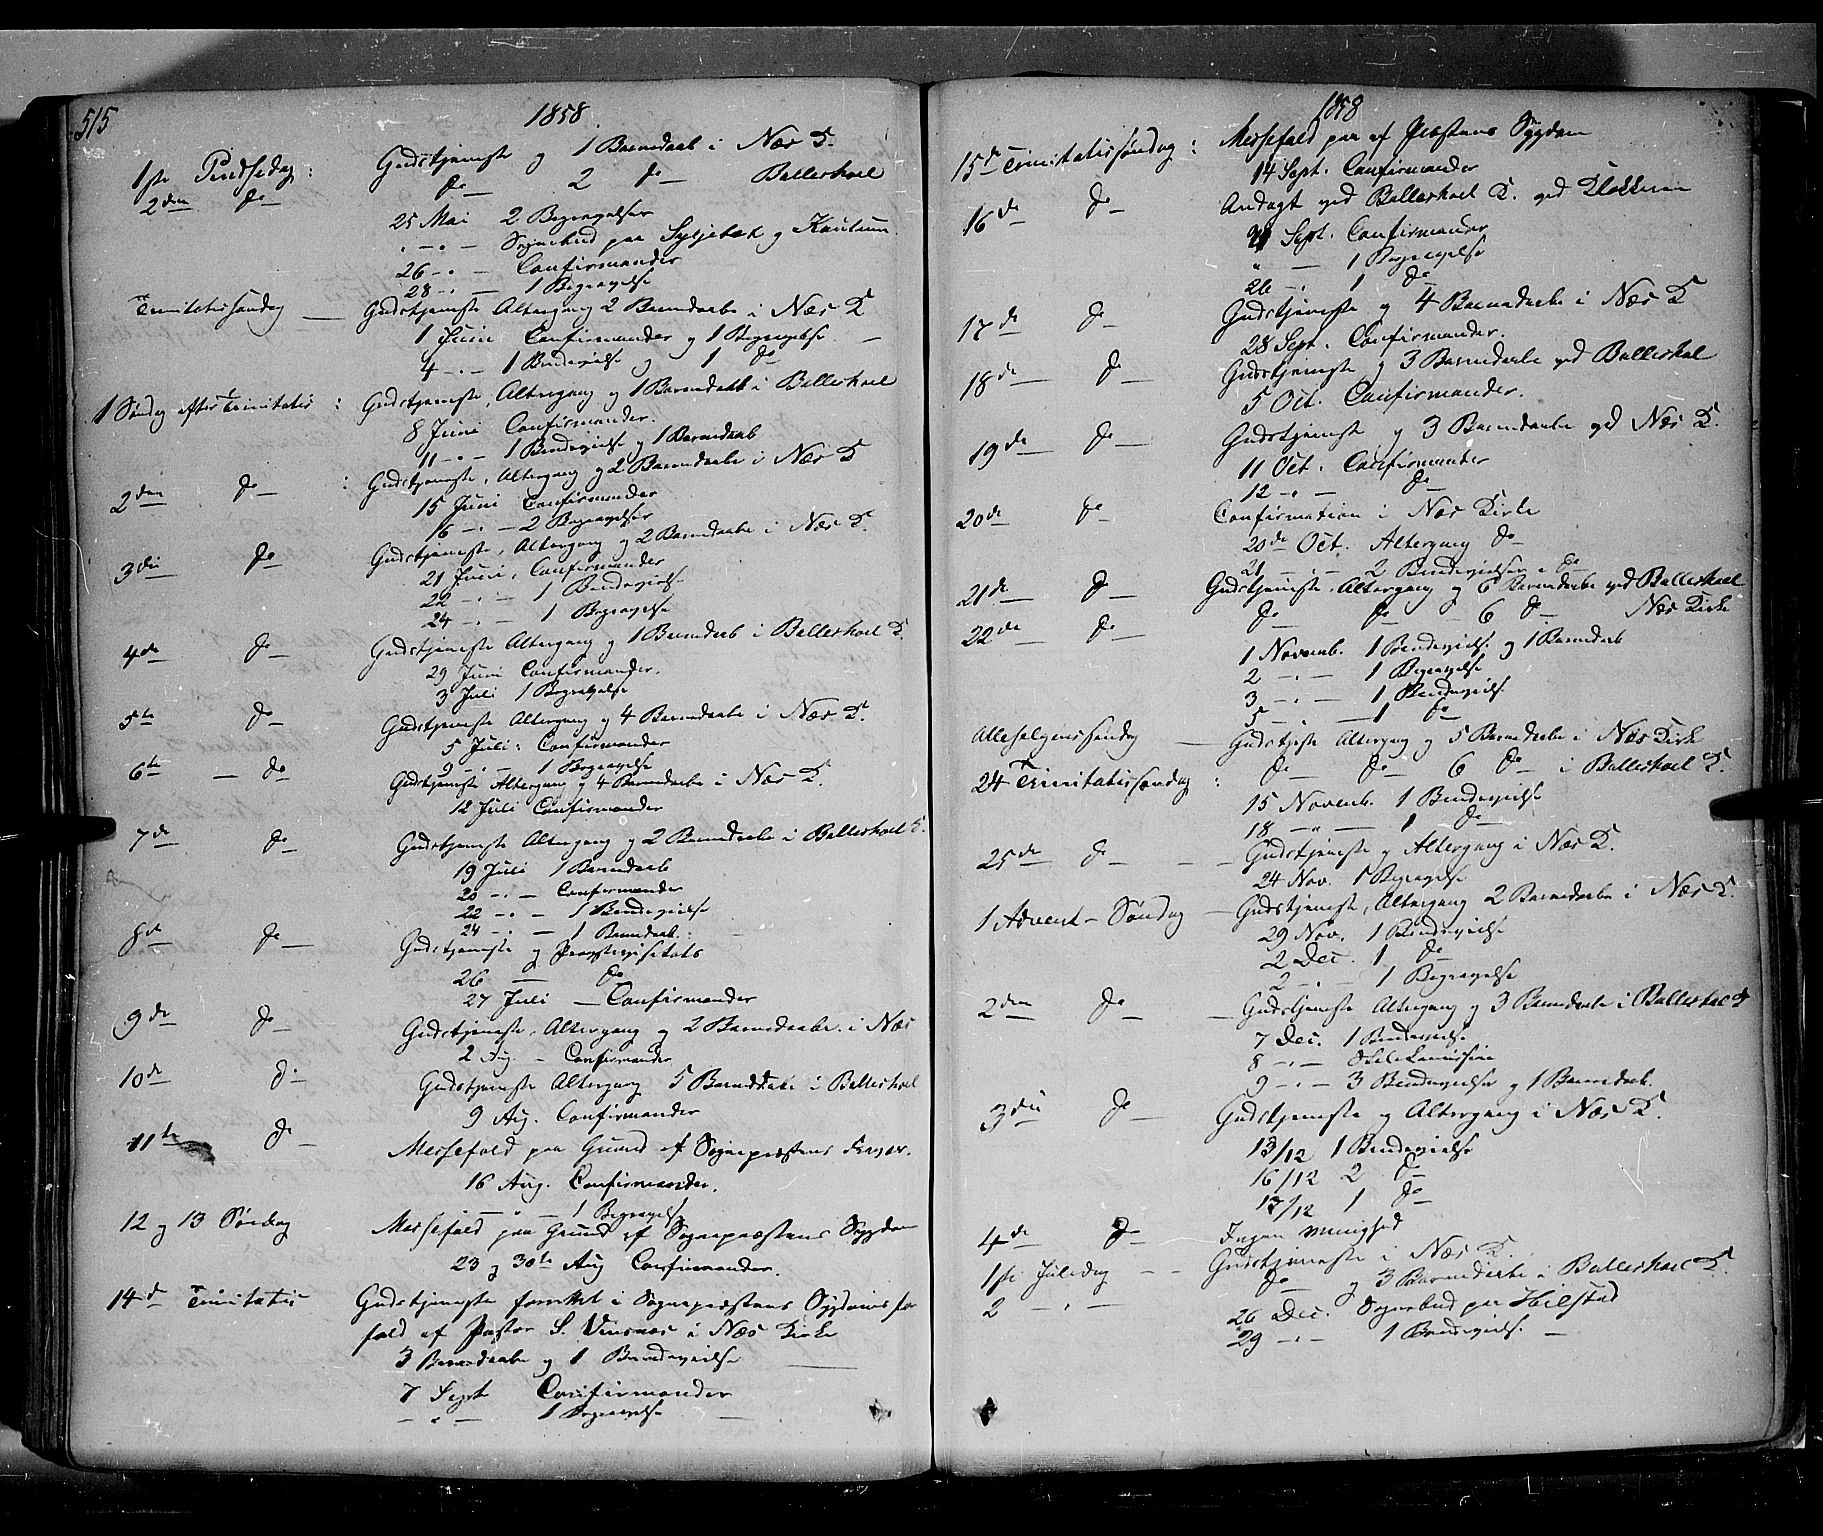 515
1858
1ste Pindsedag: Gudstjeneste og 1 Barnedaab i Næs K.
2den do 2 do Ballerhoel
25 Mai 2 Begravelser
" - " - Sognebud paa
26 - " - Confirmander
28 - " - 1 Begravelse
Trinitatissøndag — Gudstjeneste Altergang 2 Barnedaabe i Næs K
1 Juni Confirmander og 1 Begravelse
4 - " - 1 Brudevielse og 1 do
1 Søndag efter Trinitatis : Gudstjeneste, Altergang og 1 Barnedaab i Ballerhoel
8 Juni Confirmander.
11 - " - 1 Brudevielse og 1 Barnedaab
2den do : Gudstjeneste, Altergang og 2 Barnedaabe i Næs K
15 Juni Confirmander
16 - " - 2 Begravelser
3die do Gudstjeneste, Altergang og 2 Barnedaabe i Næs K.
21 Juni, Confirmander
22 - " - 1 Brudevielse
24 - " - 1 Begravelse
4de do Gudstjeneste Altergang og 1 Barnedaab i Ballerhoel K.
29 Juni Confirmander.
3 Juli 1 Begravelse
5te do Gudstjeneste Altergang og 4 Barnedaabe i Næs K.
5 Juli: Confirmander
9 - " - 1 Begravelse
6te — do Gudstjeneste Altergang og 4 Barnedaabe i Næs K.
12 Juli Confirmander
7de do Gudstjeneste Altergang og 2 Barnedaabe i Ballerhoel K.
19 Juli 1 Barnedaab
20 - " - Confirmander
22 - " - 1 Brudevielse
24 - " - 1 Barnedaab.
8de do Gudstjeneste og Provstevisitats
26 — do
27 Juli — Confirmander
9de do Gudstjeneste, Altergang og 2 Barnedaabe i Næs
2 Aug. - Confirmander
10de do Gudstjeneste Altergang 5 Barnedaabe i Ballerhoel
9 Aug. Confirmander
11te do Messefald paa Grund af Sognepræstens
16 Aug. Confirmander.
— " — 1 Begravelse
12 og 13 Søndag Messefald paa Grund af Sognepræstens Sygdom
23 og 30te Aug Confirmander.
14de Trinitatis Gudstjeneste forrettet i Sognepræstens Sygdomsfor
fald af Pastor S. i Næs Kirke
3 Barnedaabe og 1 Brudevielse
7 Sept Confirmander
- " - 1 Begravelse
1858
15de Trinitatissøndag : Messefald paa af Præstens Sygdom
14 Sept. Confirmander
16de do Andagt ved Ballerhoel K. ved Klokkeren
21 Sept. Confirmander
" — 1 Begravelse
26 - " 1 do
17de do Gudstjeneste og 4 Barnedaabe i Næs K
28 Sept. Confirmander.
18de do Gudstjeneste og 3 Barnedaabe ved Ballerhoel
5 Oct. Confirmander.
19de do Gudstjeneste og 3 Barnedaabe ved Næs K.
11 Oct. Confirmander
12 - " - do
20de do Confirmation i Næs Kirke
20de Oct. Altergang do
21 - " - 2 Brudevielser i do
21de do Gudstjeneste, Altergang og 6 Barnedaabe ved Ballerhoel
22de do do do 6 do Næs Kirke
1 Novemb. 1 Brudevielse og 1 Barnedaab
2 - " - 1 Begravelse
3 - " - 1 Brudevielse
5 - " - 1 do
Allehelgenssøndag — Gudstjeneste Altergang og 5 Barnedaabe i Næs Kirke
24 Trinitatissøndag : do do 6 do i Ballerhoel K.
15 Novemb. 1 Brudevielse
18 - " - 1 do
25de do — Gudstjeneste og Altergang i Næs K.
24 Nov. 1 Begravelse
1 Advent-Søndag — Gudstjeneste, Altergang 2 Barnedaabe i Næs K.
29 Nov. 1 Brudevielse
2 Dec. 1 do
2 - " - 1 Begravelse
2den do — Gudstjeneste Altergang og 3 Barnedaabe i Ballerhoel K
7 Dec. 1 Brudevielse
8 - " - Skolecommission
9 - " - 3 Brudevielser og 1 Barnedaab.
3die do Gudstjeneste og Altergang i Næs K.
13/12 1 Brudevielse
16/12 2 do
17/12 1 do
4de do Ingen Menighed
1ste Juledag - - Gudstjeneste i Næs K.
2 - " - do og 3 Barnedaabe i Ballerhoel K.
26 Dec. Sognebud paa
29 - " - 1 Brudevielse